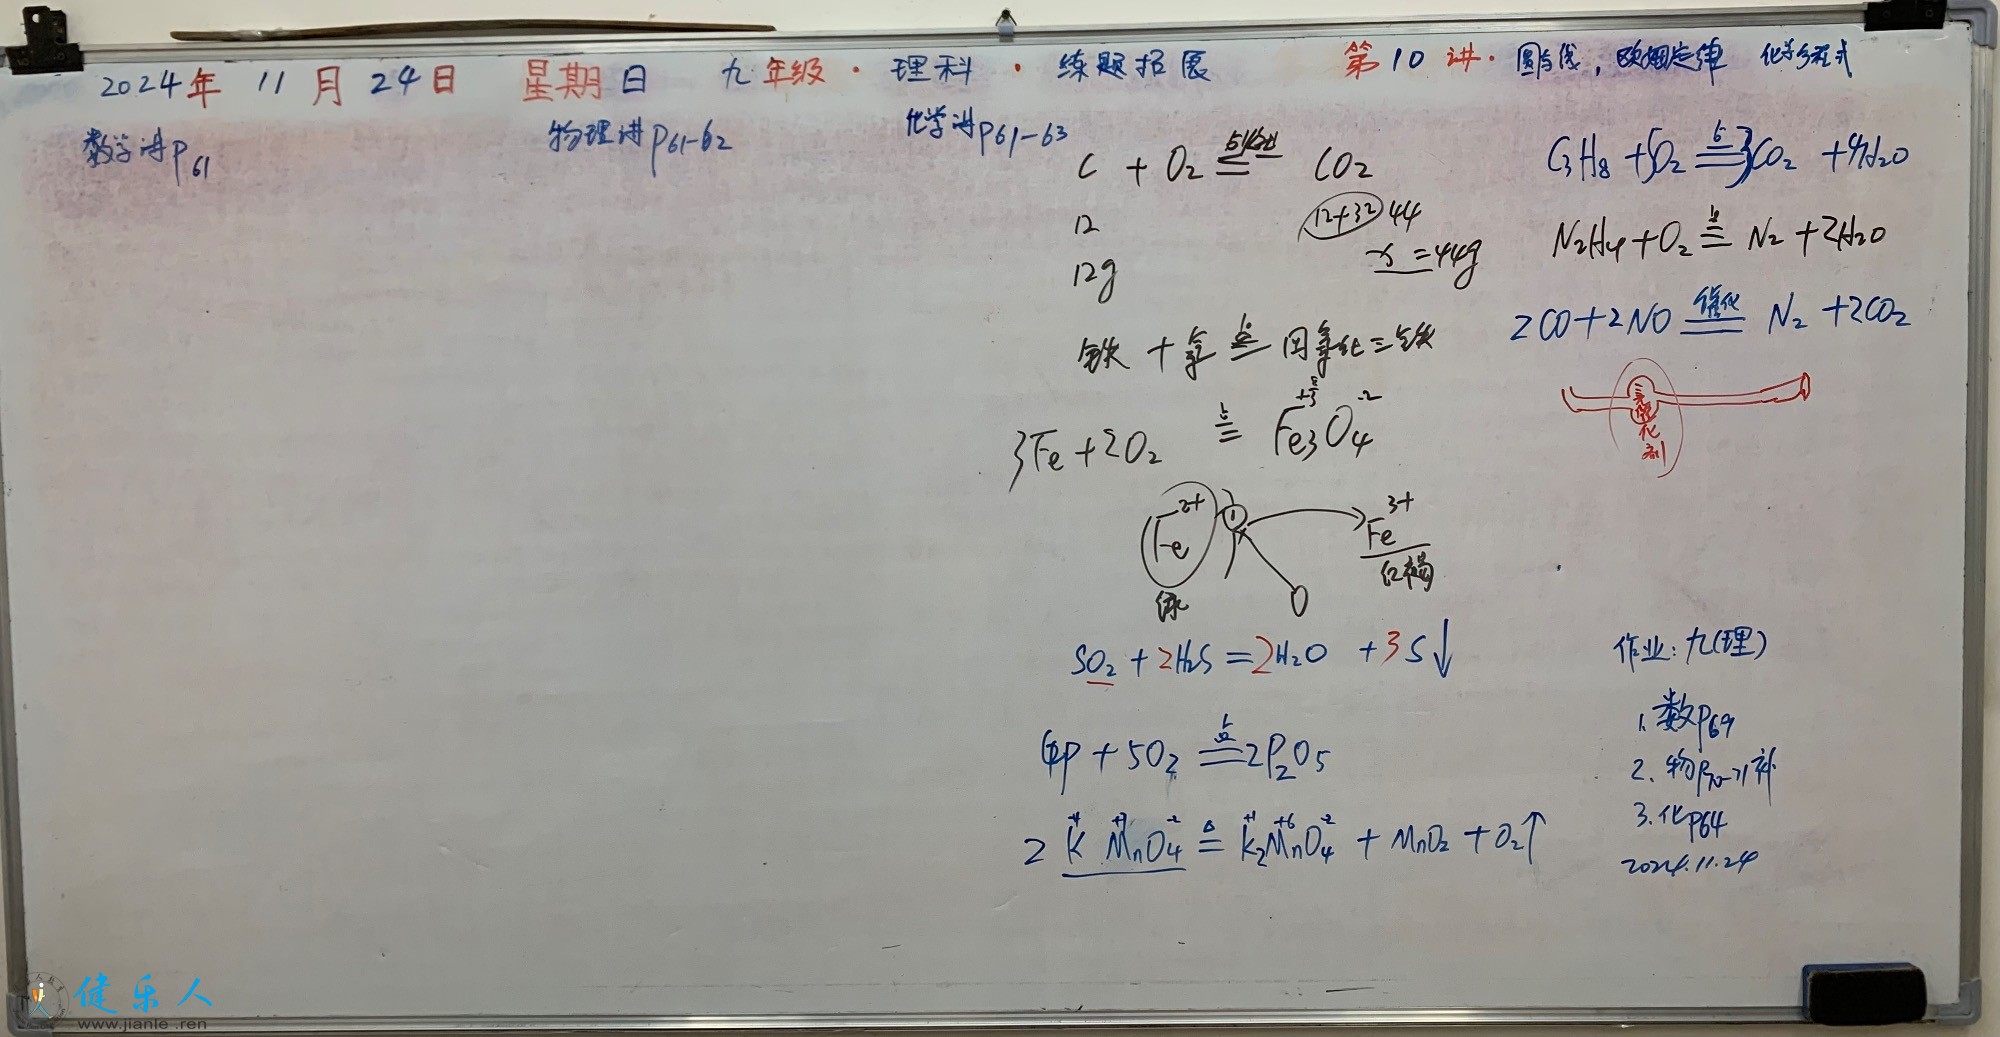 2024年 11月 24日 星期日 九年级·理科·练题拓展 第10讲·圆与线,欧姆定律 化学方程式
数学讲P61
物理讲P61-62
化学讲P61-63
C + O2 点燃 CO2
12 12+32 44
12g x=44g
铁 + 氧 点 四氧化三铁
3Fe + 2O2 点 Fe3O4
+8/3 -2
Fe2+ Fe3+
红褐
SO2 + 2H2S = 2H2O + 3S↓
4P + 5O2 点 2P2O5
+1 +7 -2 +1 +6 -2
2KMnO4 ≜ K2MnO4 + MnO2 + O2↑
C3H8 + 5O2 点 3CO2 + 4H2O
N2H4 + O2 点 N2 + 2H2O
2CO + 2NO 催化 N2 + 2CO2
三元催化剂
作业:九(理)
1. 数P69
2. 物P70-71补
3. 化P64
2024.11.24
健乐人
www.jianle.ren